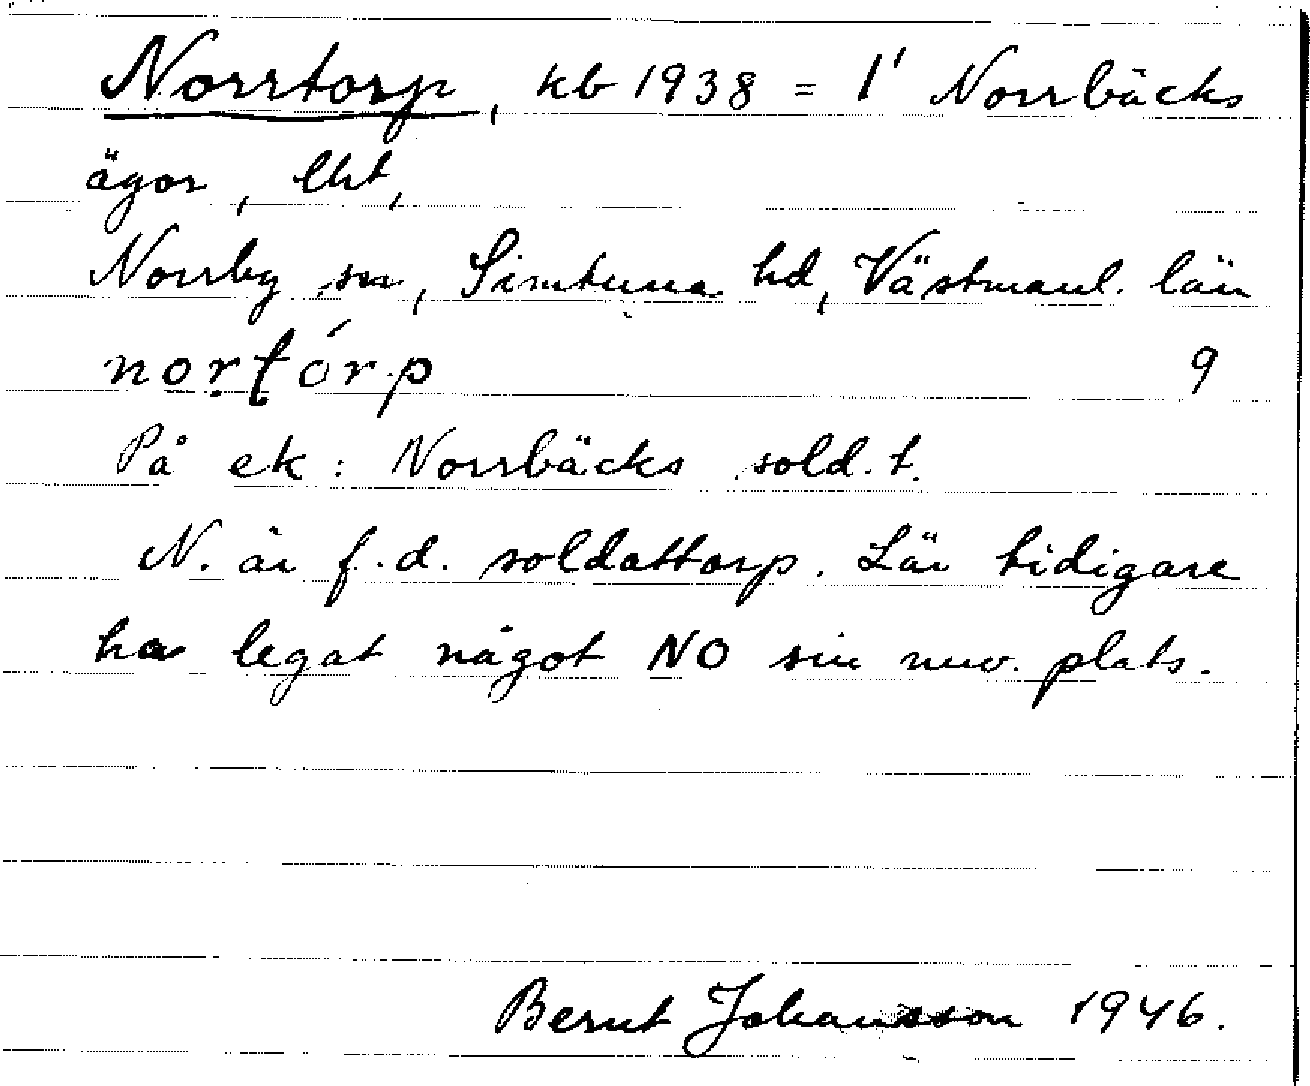 Norrtorp, kb 1938 = 1' Norrbäcks
ägor, lht,
Norrby sn, Simtuna hd, Västmanl. län
noṛtórp 9
På ek: Norrbäcks sold.t.
N. är f.d. soldattorp. Lär tidigare
ha legat något NO sin nuv. plats.
Bernt Johansson 1946.